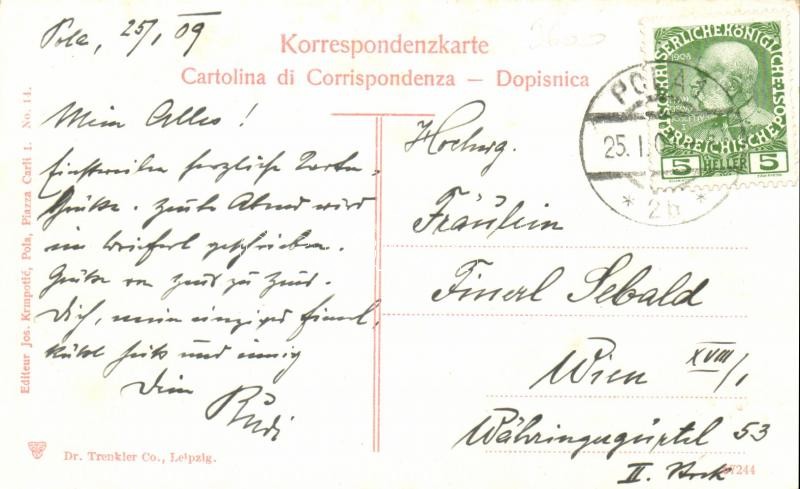 Pola, 25/I 09
Korrespondenzkarte
Cartolina di Corrispondenza — Dopisnica
Mein Alles!
Einstweilen herzliche Karten-
grüße. Heute Abend wird
ein Brieferl geschrieben.
Grüße von Haus zu Haus.
Dich, mein einziges Finerl,
küßt heiß und innig
Dein
Rudi
Hochwg.
Fräulein
Finerl Sebald
Wien XVIII/1
Währingergürtel 53
II. Stock
KAISERLICHEKÖNIGLICHE
ÖSTERREICHISCHE POST
1908
5 HELLER 5
POLA 1
25. I. 0
* 2b *
Editeur Jos. Krmpotić, Pola, Piazza Carli 1. No. 14.
Dr. Trenkler Co., Leipzig.
67244